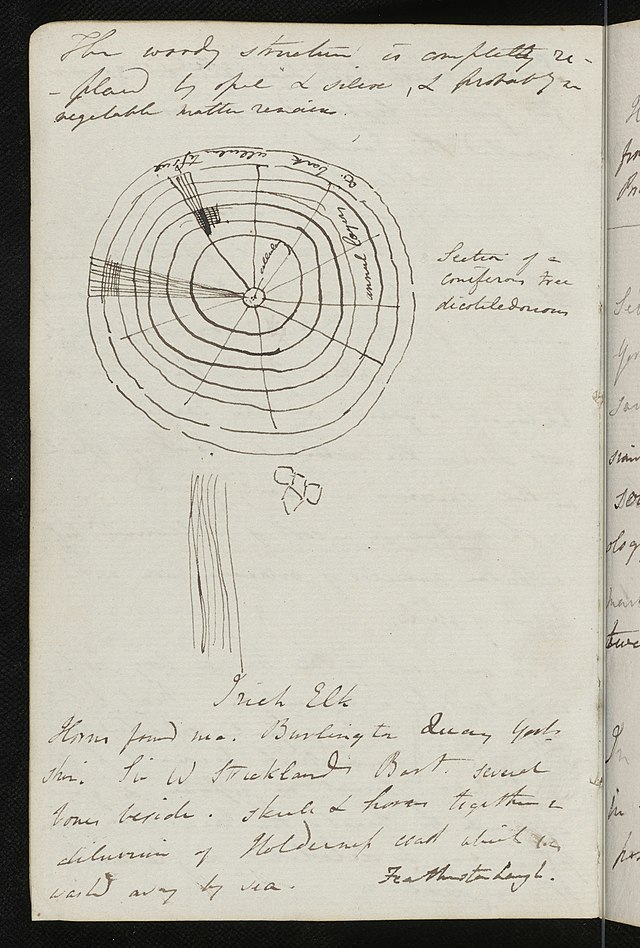 The woody structure is completely re-
- placed by opal & silex, & probably no
vegetable matter remains.
bark cellular tissue
annual layers
Section of a
coniferous tree
dicotiledonous
Irish Elk
Horns found nea. Burlington Quay York-
shir. Sir W Strickland Bart. several
bones beside. skull & horns together in
diluvium of Holderness coast which is
washd away by sea.
Featherstonhaugh.